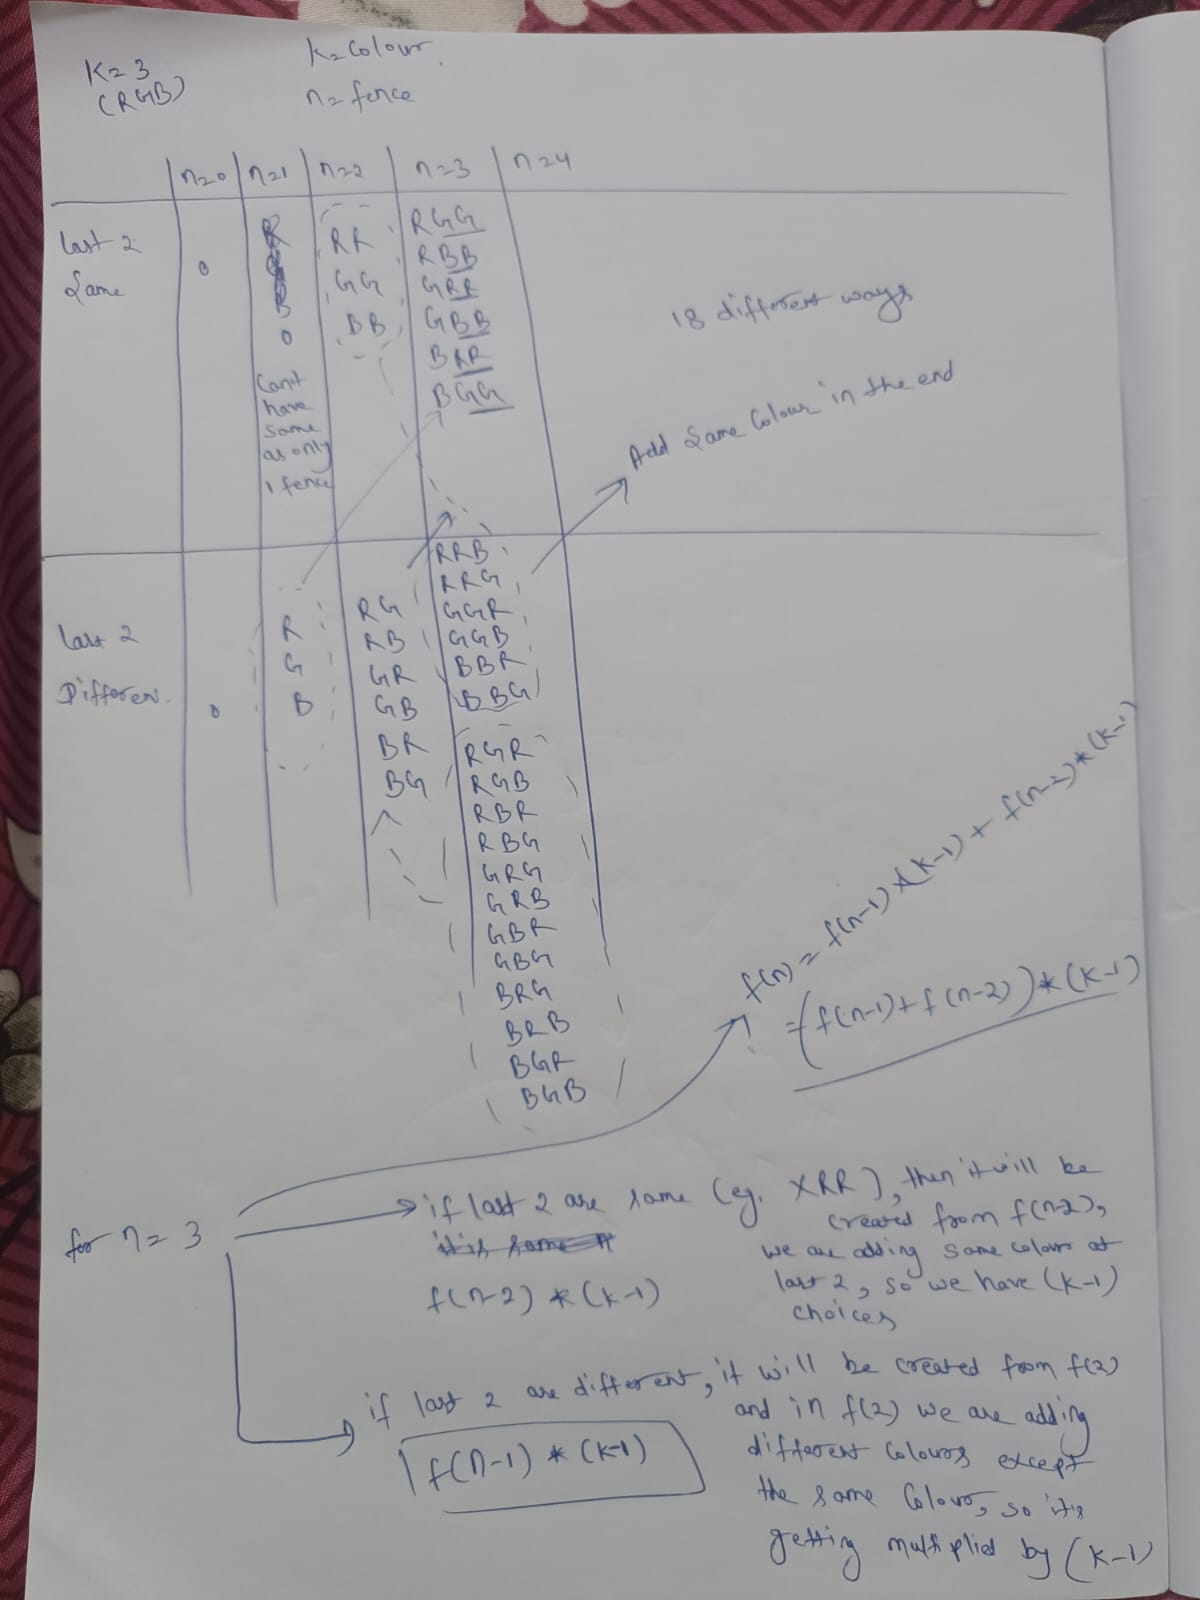 K=3
(RGB)
K=Colour.
n=fence
n=0
n=1
n=2
n=3
n=4
Last 2
Same
0
0
Can't
have
same
as only
1 fence
RR
GG
BB
RGG
RBB
GRR
GBB
BRR
BGG
18 different ways
Add Same Colour in the end
Last 2
Differen.
0
R
G
B
RG
RB
GR
GB
BR
BG
RRB
RRG
GGR
GGB
BBR
BBG
RGR
RGB
RBR
RBG
GRG
GRB
GBR
GBG
BRG
BRB
BGR
BGB
f(n) = f(n-1)*(k-1) + f(n-2)*(k-1)
=(f(n-1)+f(n-2))*(k-1)
for n=3
if last 2 are same (eg. XRR), then it will be
created from f(n-2),
we are adding same colour at
last 2, so we have (k-1)
choices
f(n-2) * (k-1)
if last 2 are different, it will be created from f(2)
and in f(2) we are adding
different colours except
the same colour, so it is
getting multiplied by (k-1)
f(n-1) * (k-1)